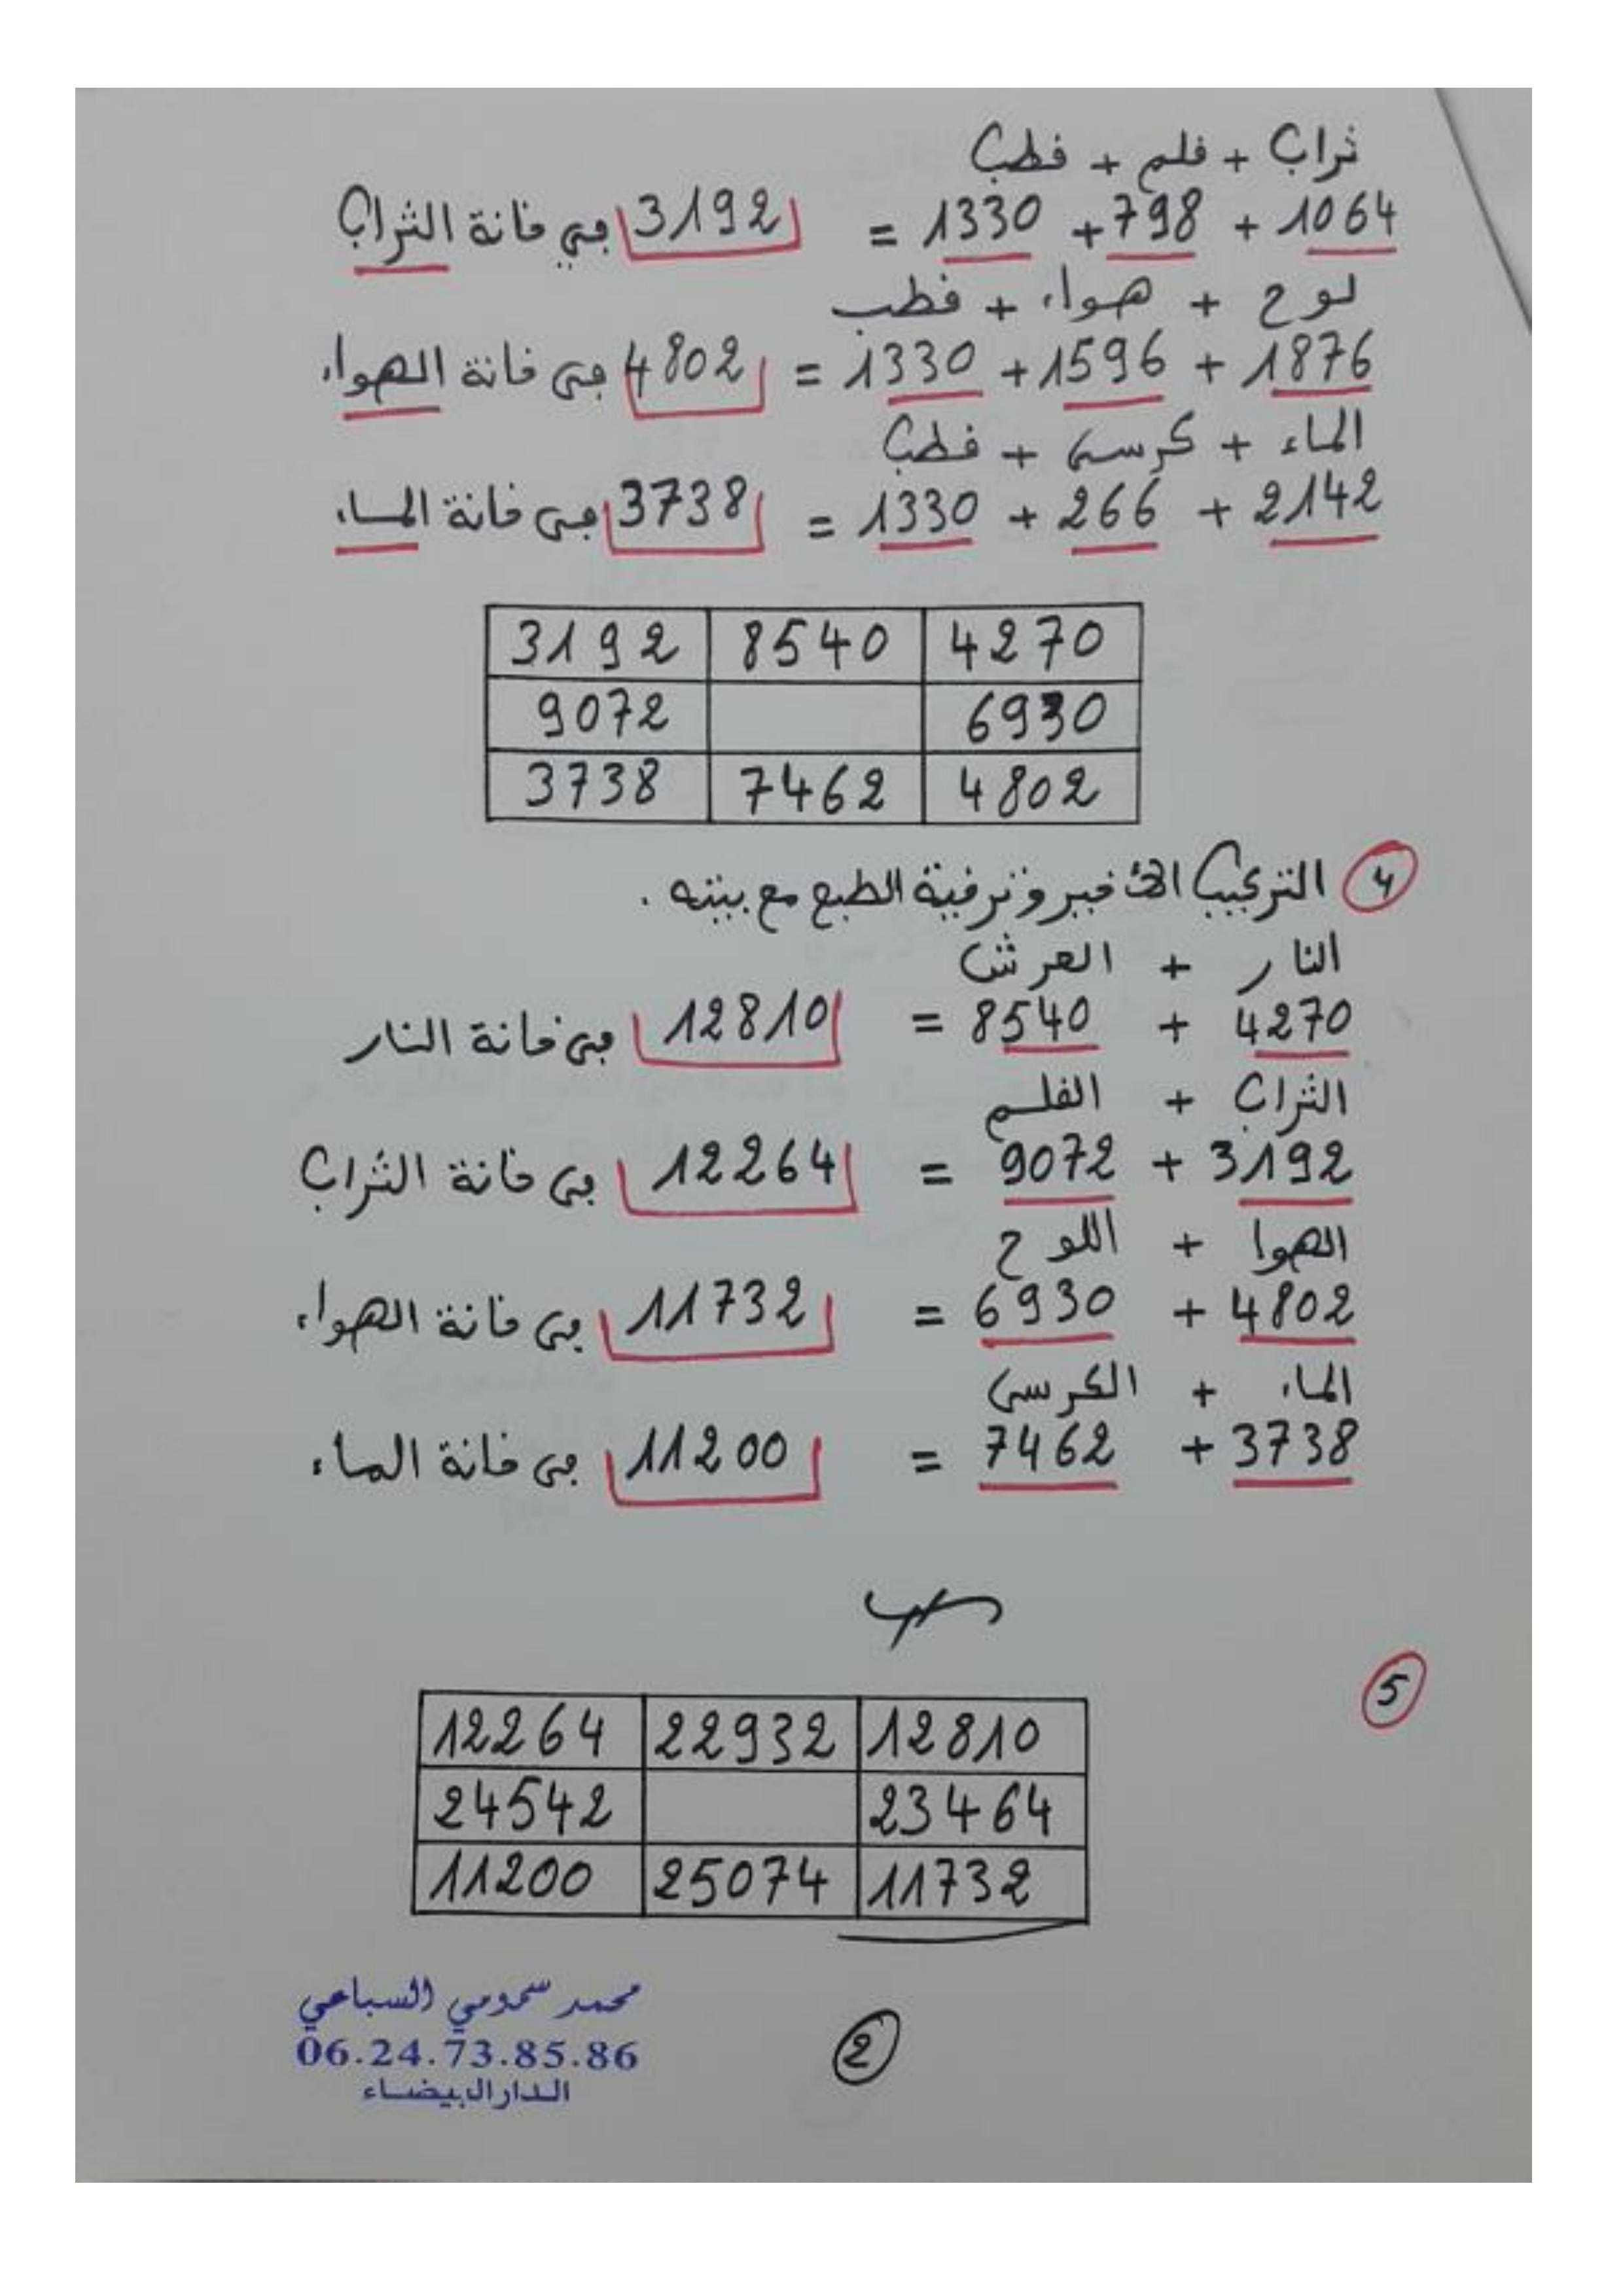 تراب + فلم + فطب
1064 + 798 + 1330 = 3192 في خانة التراب
لوح + هواء + فطب
1876 + 1596 + 1330 = 4802 في خانة الهواء
الماء + كرسي + فطب
2142 + 266 + 1330 = 3738 في خانة الماء
3192 8540 4270
9072 6930
3738 7462 4802
4 التركيب الأخير وترفية الطبع مع بيته .
النار + العرش
4270 + 8540 = 12810 في خانة النار
التراب + الفلم
3192 + 9072 = 12264 في خانة التراب
الهوا + اللوح
4802 + 6930 = 11732 في خانة الهواء
الماء + الكرسي
3738 + 7462 = 11200 في خانة الماء
5
12264 22932 12810
24542 23464
11200 25074 11732
محمد سحومي السباعي
06.24.73.85.86
الدار البيضاء
2